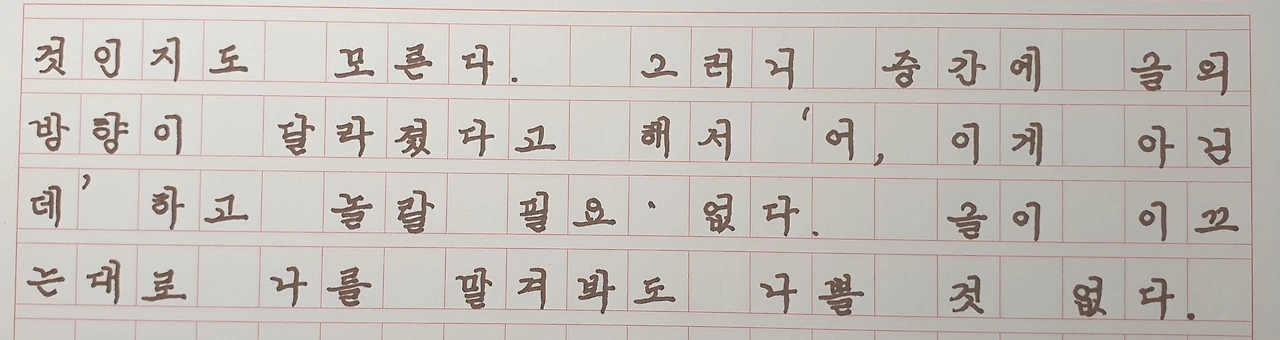 것인지도 모른다. 그러니 중간에 글의
방향이 달라졌다고 해서 ‘어, 이게 아닌
데’ 하고 놀랄 필요· 없다. 글이 이끄
는대로 나를 맡겨봐도 나쁠 것 없다.